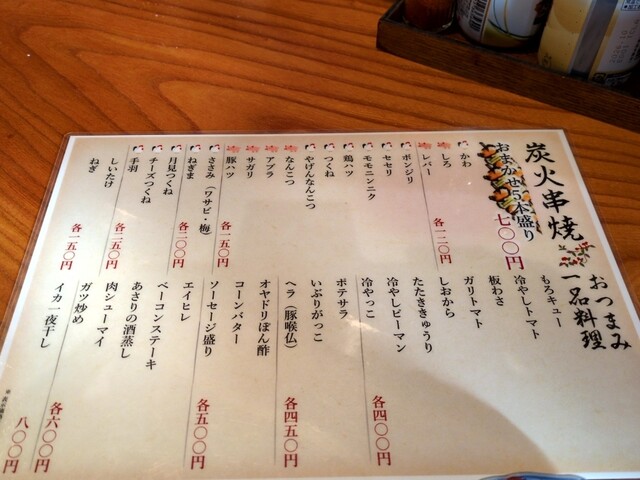 炭火串焼
おまかせ5本盛り
七〇〇円
かわ
しろ
レバー
各一二〇円
ボンジリ
セセリ
モモニンニク
鶏ハツ
つくね
やげんなんこつ
なんこつ
アブラ
サガリ
豚ハツ
各一五〇円
ささみ（ワサビ・梅）
ねぎま
各二〇〇円
月見つくね
チーズつくね
手羽
各二五〇円
しいたけ
ねぎ
各一五〇円
おつまみ
一品料理
もろキュー
冷やしトマト
板わさ
ガリトマト
しおから
たたききゅうり
冷やしピーマン
冷やっこ
各四〇〇円
ポテサラ
いぶりがっこ
ヘラ（豚喉仏）
各四五〇円
オヤドリぽん酢
コーンバター
ソーセージ盛り
各五〇〇円
エイヒレ
ベーコンステーキ
あさりの酒蒸し
肉シューマイ
ガツ炒め
各六〇〇円
イカ一夜干し
八〇〇円